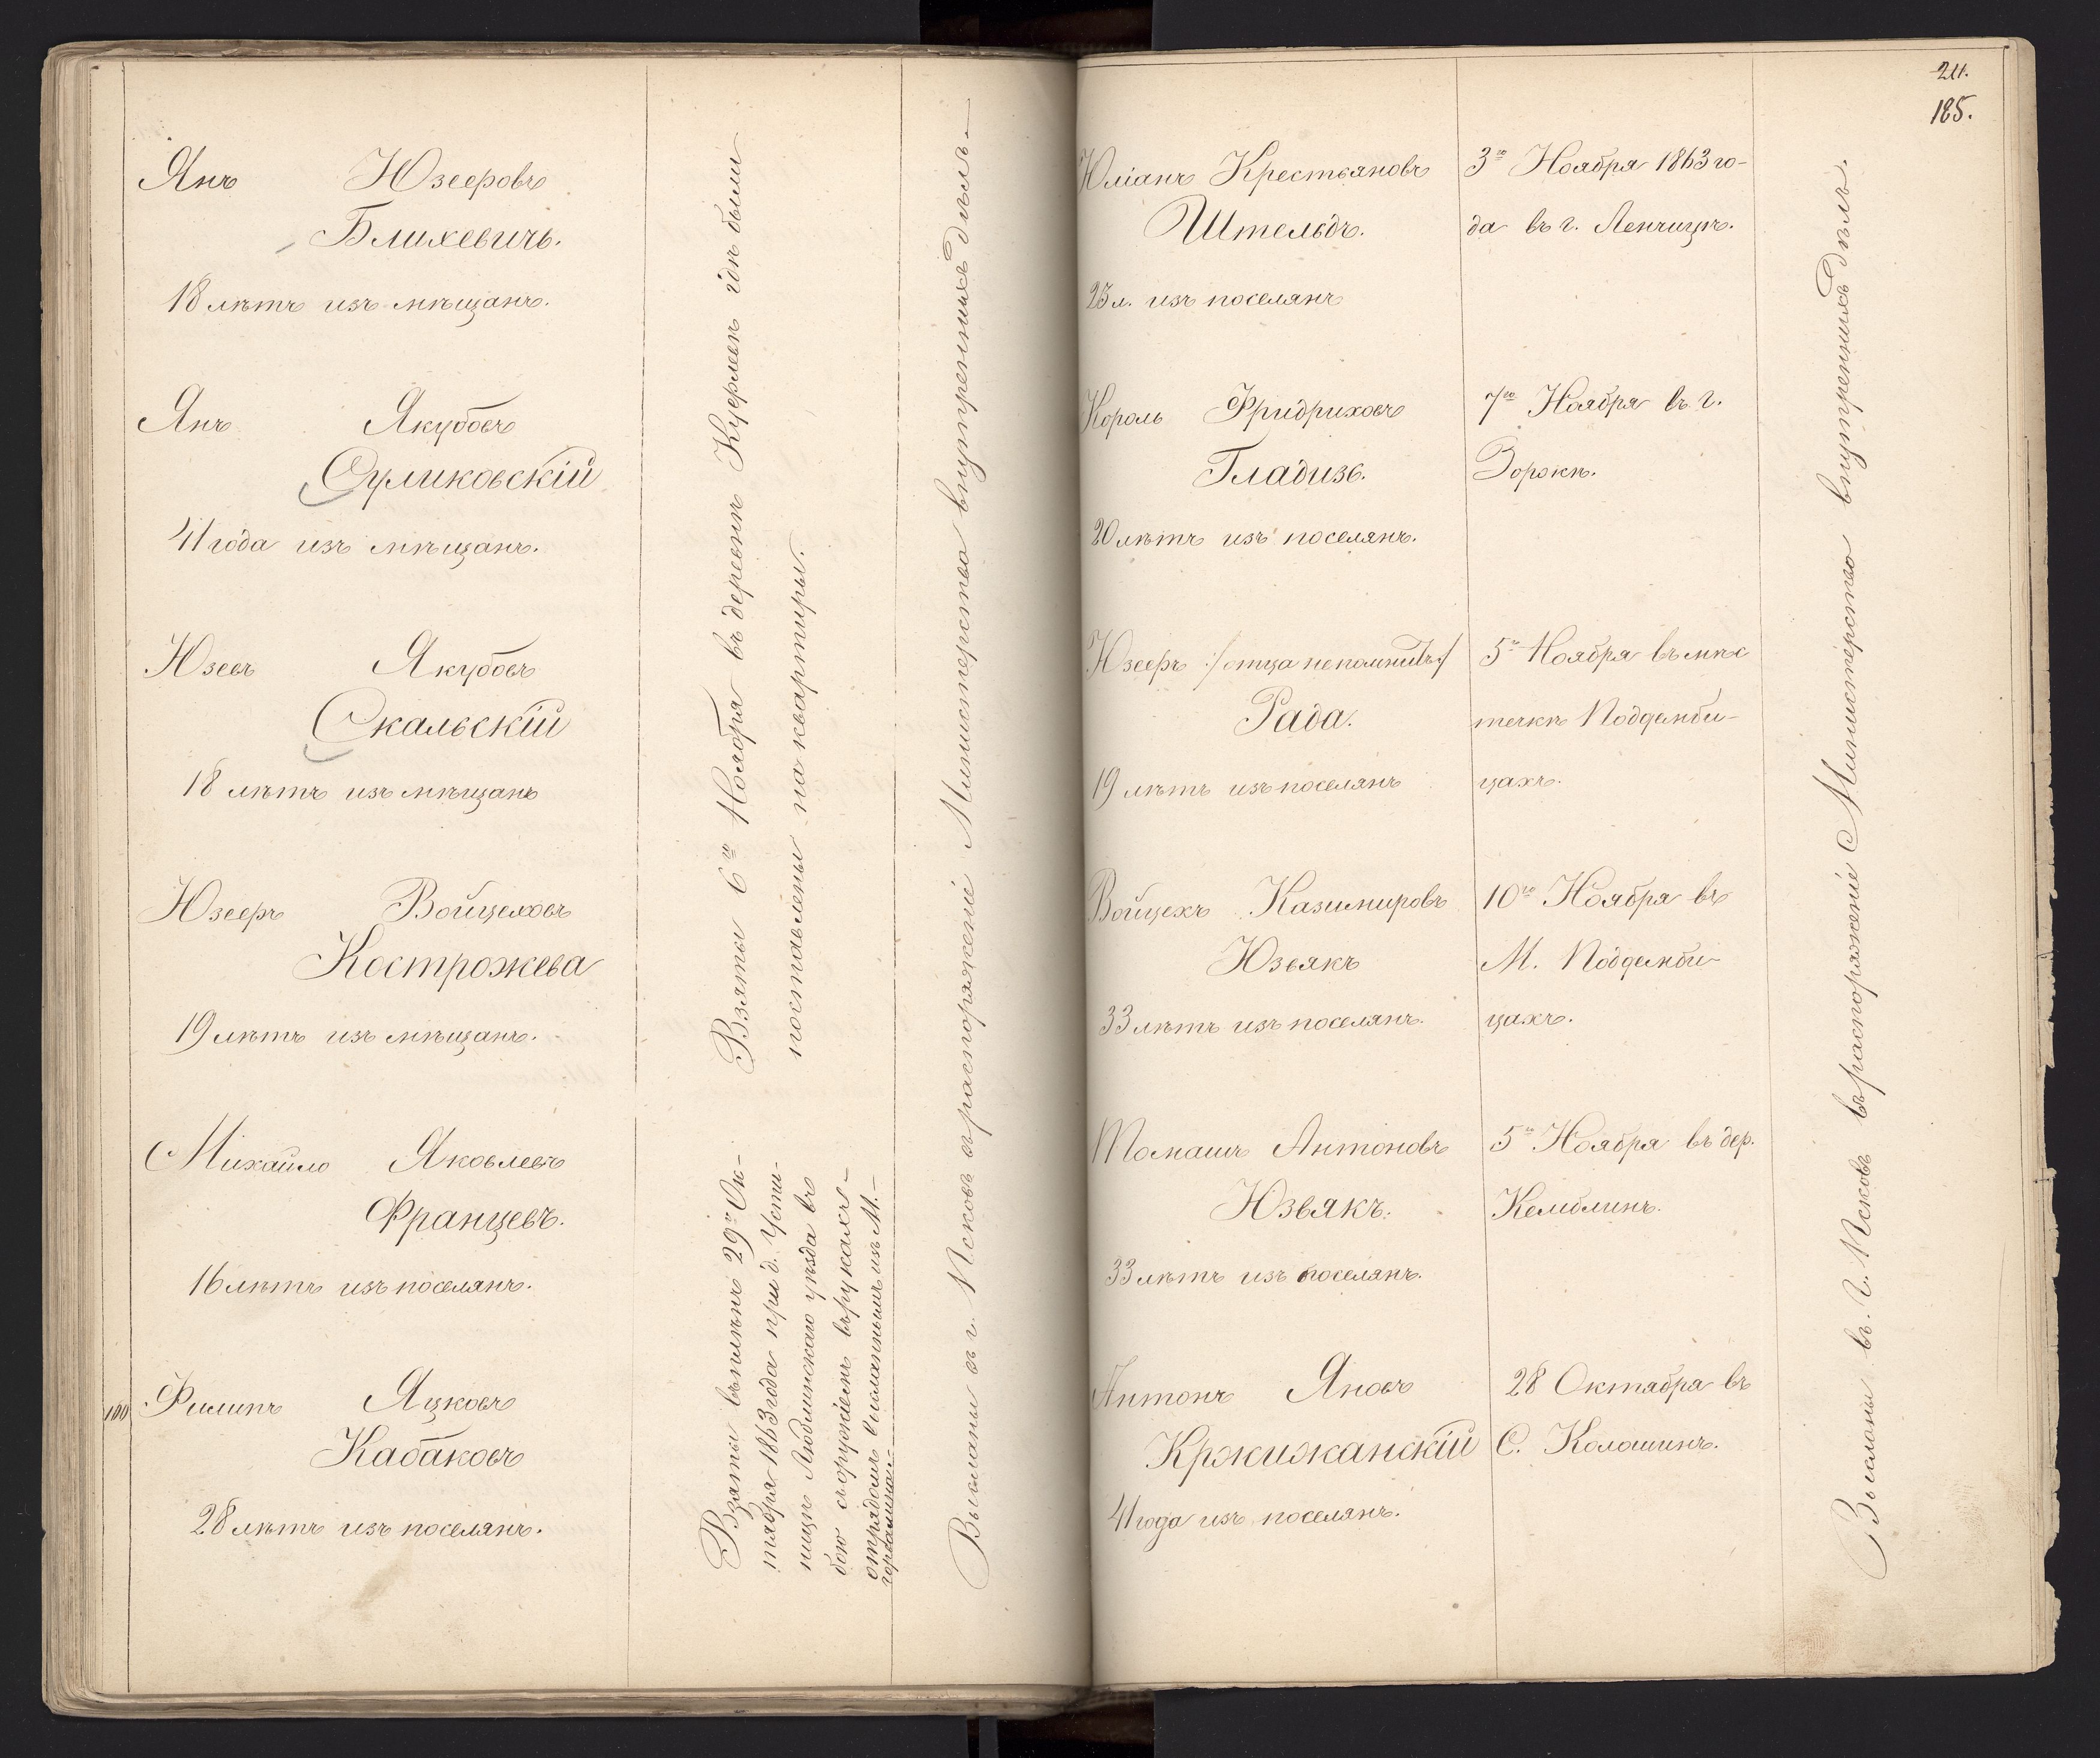 Янъ Юзефовъ
Блихевичъ.
18 лѣтъ изъ мѣщанъ.
Янъ Якубовъ
Суликовскій
41 года изъ мѣщанъ.
Юзевъ Якубовъ
Скальскій
18 лѣтъ изъ мѣщанъ
Юзефъ Войцеховъ
Костржева
19 лѣтъ изъ мѣщанъ.
Взяты 6го Ноября въ деревнѣ гдѣ были
поставлены на квартиры.
Михайло Яковлевъ
Францевъ.
16 лѣтъ изъ поселянъ.
100 Филипъ Яцковъ
Кабаковъ
28 лѣтъ изъ поселянъ.
Взяты въ плѣнъ 29го Ок-
тября 1863 года при д. Усти-
мицѣ Люблинскаго уѣзда въ
бою съ оружіемъ въ рукахъ
отрядомъ высланнымъ изъ М.
Высланы въ г. Псковъ въ распоряженіе Министерства внутреннихъ дѣлъ.
211.
185.
Юліанъ Крестьяновъ
Штельдъ.
23 л. изъ поселянъ
3го Ноября 1863 го-
да въ г. Ленчицѣ.
Король Фридриховъ
Гладизь.
20 лѣтъ изъ поселянъ.
7го Ноября въ г.
Зоржѣ.
Юзефъ /:отца не помнитъ:/
Рада.
19 лѣтъ изъ поселянъ
5го Ноября въ мѣс
течкѣ Поддемби-
цахъ.
Войцехъ Казимировъ
Юзвякъ
33 лѣтъ изъ поселянъ.
10го Ноября въ
М. Поддемби-
цахъ.
Томашъ Антоновъ
Юзвякъ.
33 лѣтъ изъ поселянъ.
5го Ноября въ дер.
Кемблинъ.
Антонъ Яновъ
Кржижанскій
41 года изъ поселянъ.
28 Октября въ
С. Колошинъ.
Высланы въ Г. Псковъ въ распоряженіе Министерство внутреннихъ дѣлъ.